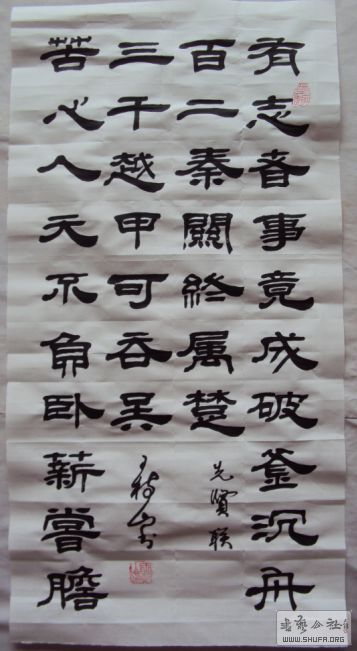 有志者事竟成破釜沉舟
百二秦關終属楚
先賢联
三千越甲可吞吴
苦心人天不負卧薪嘗膽
书艺公社
WWW.SHUFA.ORG